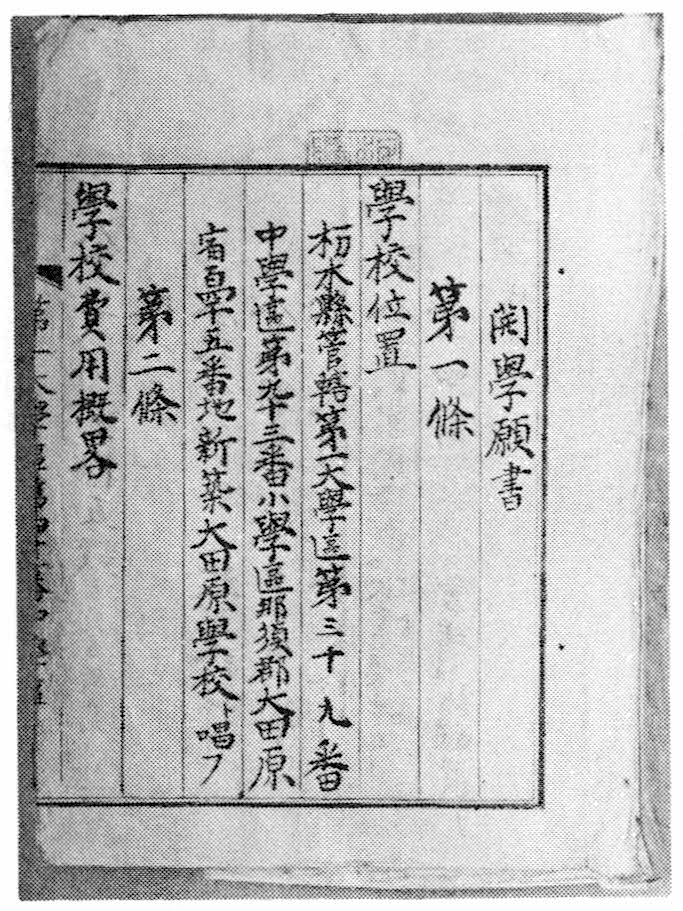 開學願書
第一條
學校位置
栃木縣管轄第一大學區第三十九番
中學區第九十三番小學區那須郡大田原
宿百四十五番地新築大田原學校ト唱フ
第二條
學校費用概畧